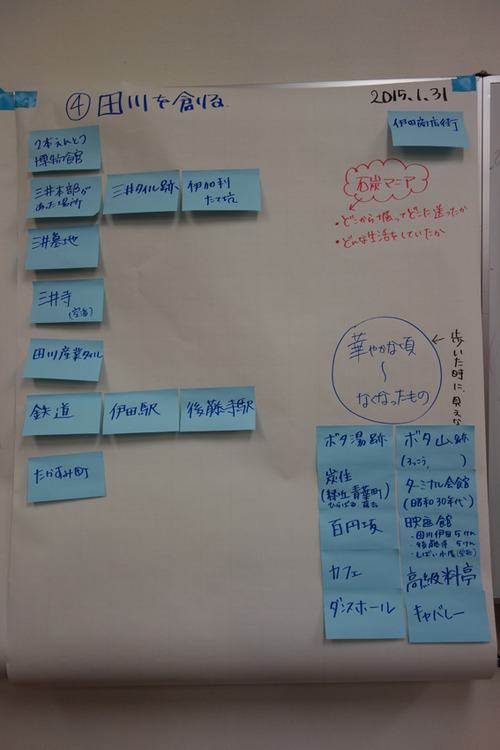 ④ 田川を創る
2015.1.31
伊田商店街
2本えんとつ
博物館
三井本部が
あった場所
三井タイル跡
伊加利
たて坑
石炭マニア
・どこから掘ってどこに送ったか
・どんな生活をしていたか
三井墓地
三井寺
田川産業タイル
鉄道
伊田駅
後藤寺駅
たかすみ町
華やかな頃
〜
なくなったもの
← 歩いた時に、見えな
ボタ湯跡
ボタ山跡
(ふっこう、)
炭住
ターミナル会館
(昭和30年代)
百円坂
映画館
・田川伊田5けん
・後藤寺5けん
・しばい小屋
カフェ
高級料亭
ダンスホール
キャバレー